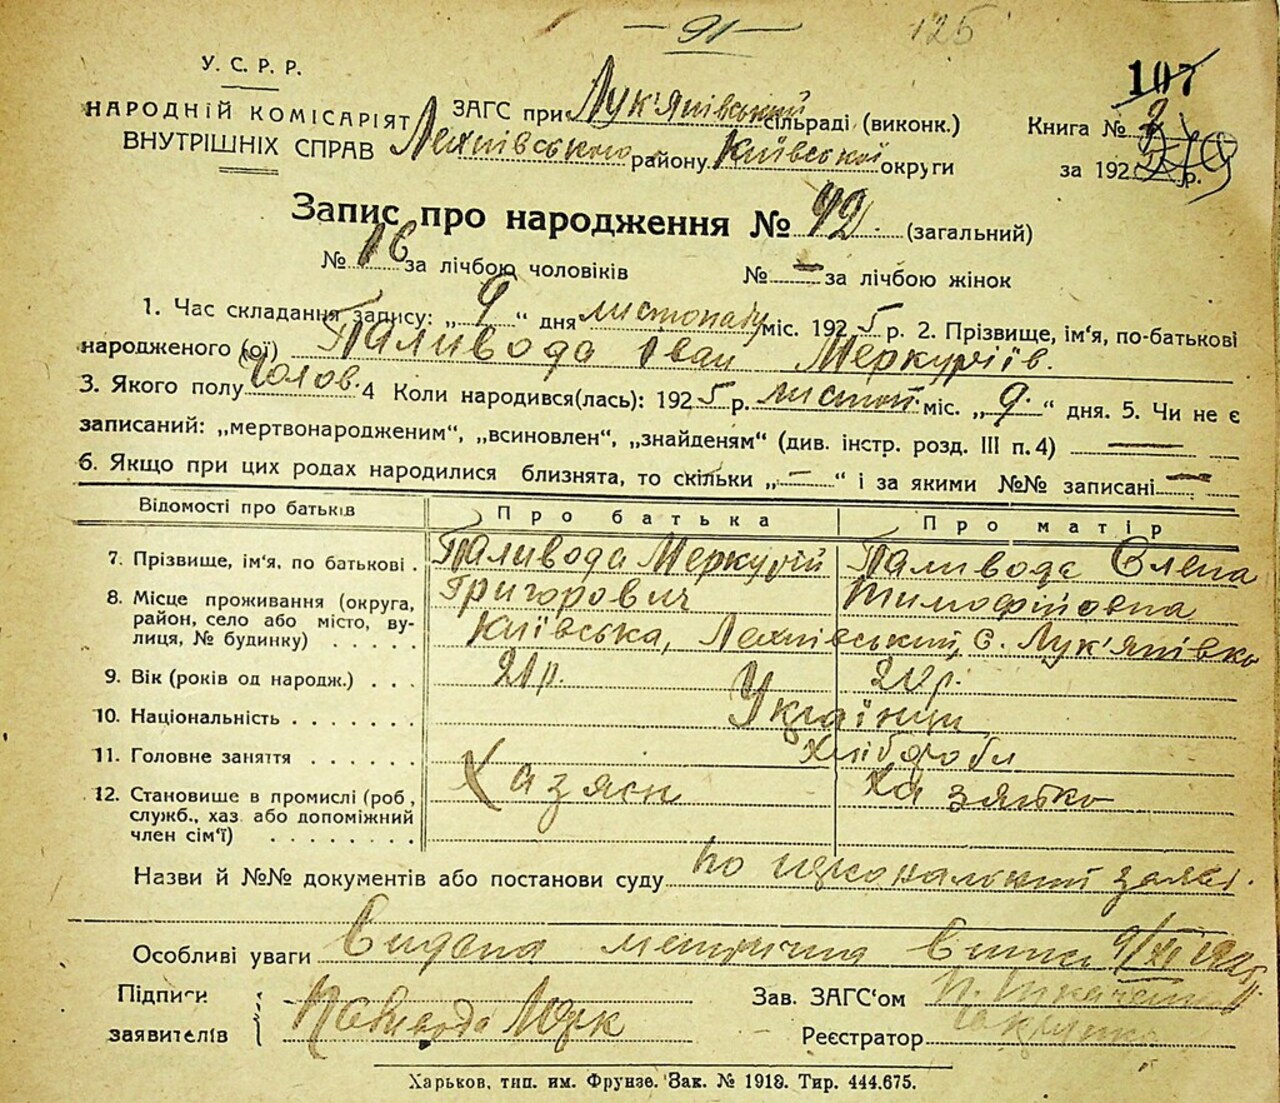 91
125
107
У. С. Р. Р.
НАРОДНІЙ КОМІСАРІЯТ
ВНУТРІШНІХ СПРАВ
ЗАГС при Лук'янівський сільраді (виконк.)
району Київської округи
Книга № 2
за 192 р.
Запис про народження № 42 (загальний)
№ 16 за лічбою чоловіків № — за лічбою жінок
1. Час складання запису: „9“ дня листопаду міс. 1925 р. 2. Прізвище, ім'я, по-батькові
народженого (ої) Паливода Іван Меркуріїв.
3. Якого полу Чолов. 4 Коли народився(лась): 1925 р. листоп. міс. „9.“ дня. 5. Чи не є
записаний: „мертвонародженим“, „всиновлен“, „знайденям“ (див. інстр. розд. III п. 4) —
6. Якщо при цих родах народилися близнята, то скільки „—“ і за якими №№ записані —
Відомості про батьків Про батька Про матір
7. Прізвище, ім'я, по батькові . Паливода Меркурій Паливода Олена
Григорович Тимофійовна
8. Місце проживання (округа,
район, село або місто, ву-
лиця, № будинку) . . . . . Київська, с. Лук'янівка
9. Вік (років од народж.) . . . 21 р. 20 р.
10. Національність . . . . . . . Українці
11. Головне заняття . . . . . . хлібороби
12. Становище в промислі (роб,
служб., хаз. або допоміжний
член сім'ї) . . . . . . . . Хазяєн Хазяйка
Назви й №№ документів або постанови суду по заяві.
Особливі уваги Видана метрична випис 9/XI 1925 р.
Підписи
заявителів Паливода Мерк
Зав. ЗАГС'ом
Реєстратор
Харьков, тип. им. Фрунзе. Зак. № 1918. Тир. 444.675.